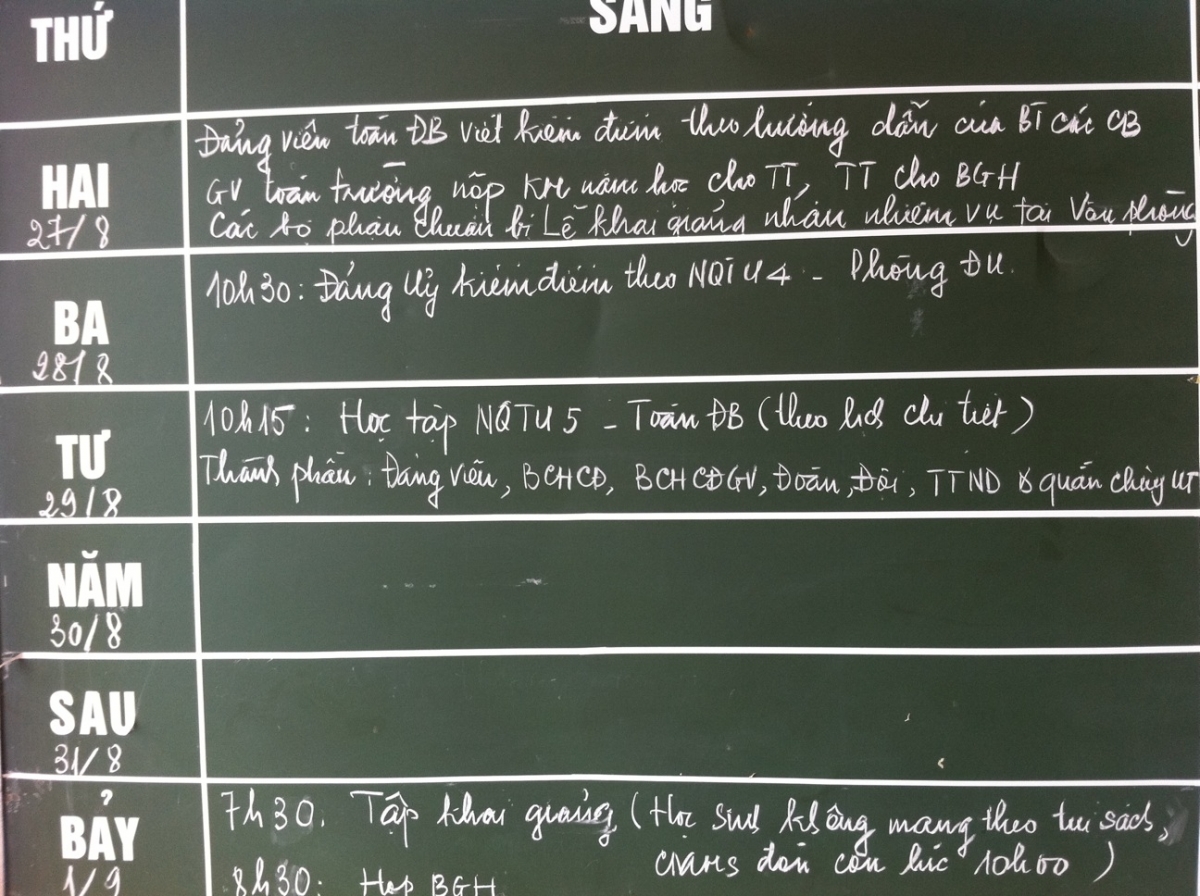 THỨ
SÁNG
HAI
27/8
Đảng viên toàn ĐB viết kiểm điểm theo hướng dẫn của BT các CB
GV toàn trường nộp KH năm học cho TT, TT cho BGH
Các bộ phận chuẩn bị Lễ khai giảng nhận nhiệm vụ tại Văn phòng
BA
28/8
10h30: Đảng Uỷ kiểm điểm theo NQTU4 - Phòng ĐU.
TƯ
29/8
10h15: Học tập NQTU5 - Toàn ĐB (theo chi tiết)
Thành phần: Đảng viên, BCHCĐ, BCHCĐGV, Đoàn, Đội, TTND & quần chúng ƯT
NĂM
30/8
SAU
31/8
BẢY
1/9
7h30. Tập khai giảng (Học sinh không mang theo túi sách,
CMHS đón con lúc 10h00)
8h30: Họp BGH